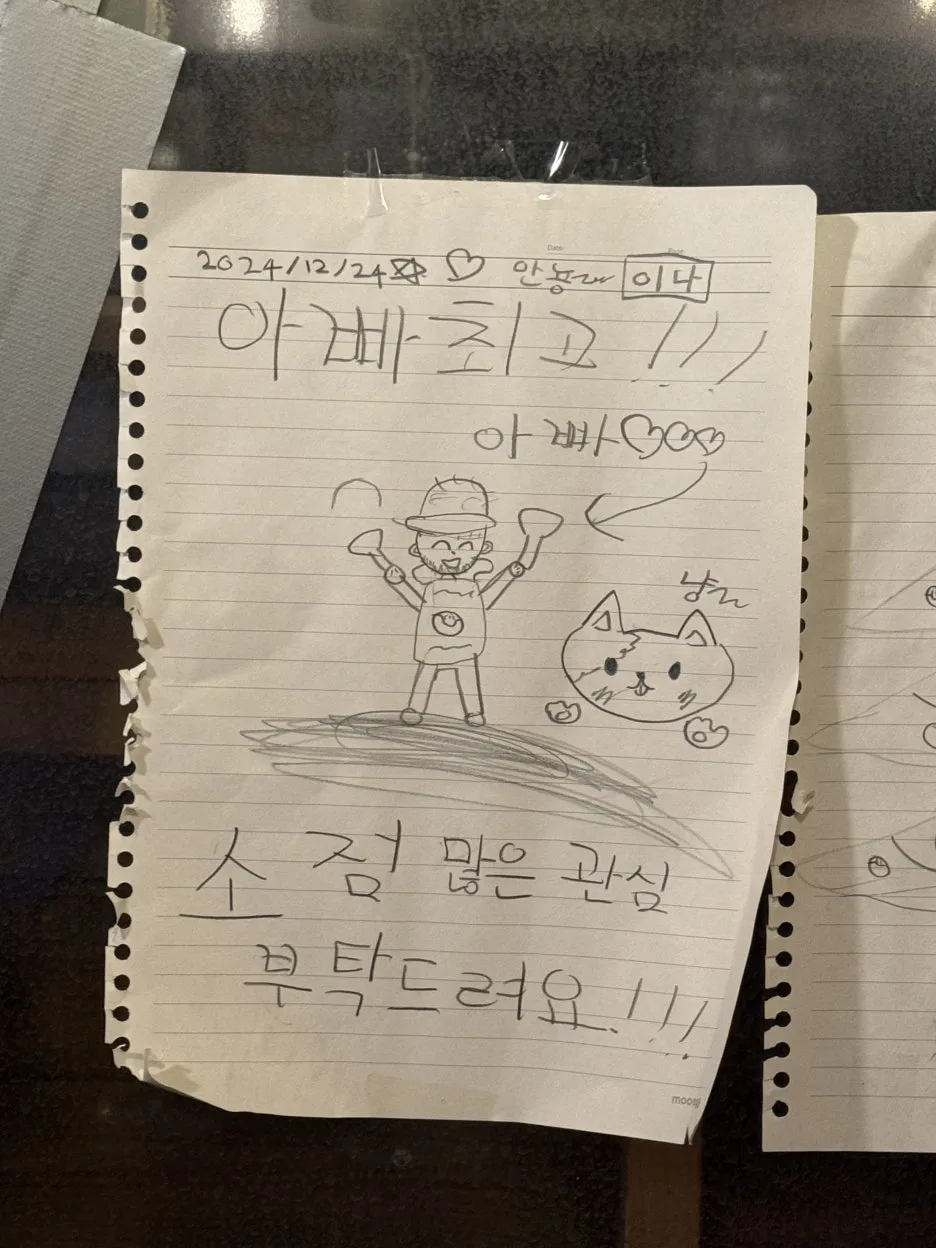 2024/12/24☆ ♡ 안뇽~ 이나
아빠 최고!!!
아빠♡♡♡
냥~
소점 많은 관심
부탁드려요!!!
moongi